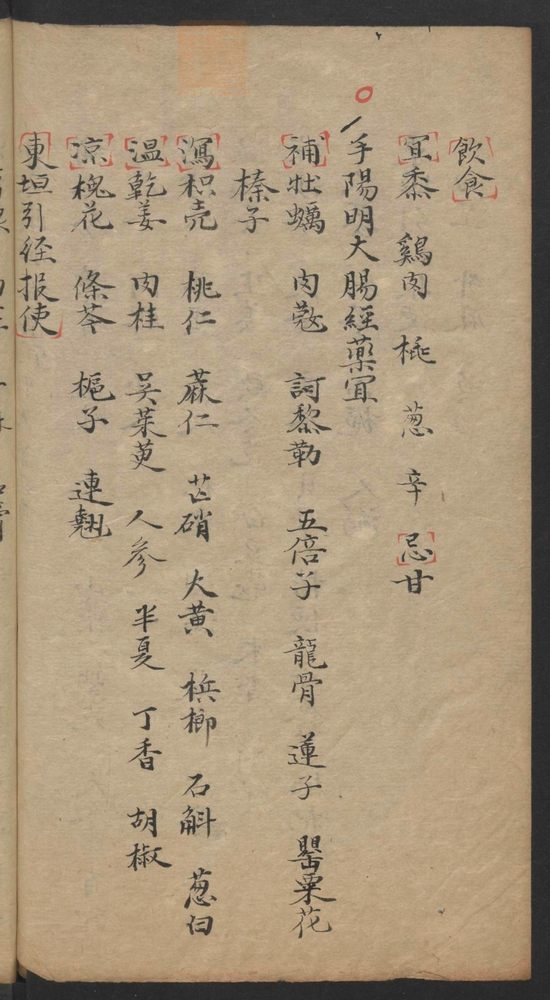 飲食
宜黍 鷄肉 桃 葱 辛 忌甘
手陽明大腸經藥宜
補牡蠣 肉蔻 訶黎勒 五倍子 龍骨 蓮子 罌粟花
榛子
瀉枳壳 桃仁 蔴仁 芒硝 大黄 梹榔 石斛 葱白
温乾姜 肉桂 吴茱萸 人参 半夏 丁香 胡椒
凉槐花 條芩 梔子 連翹
東垣引経报使